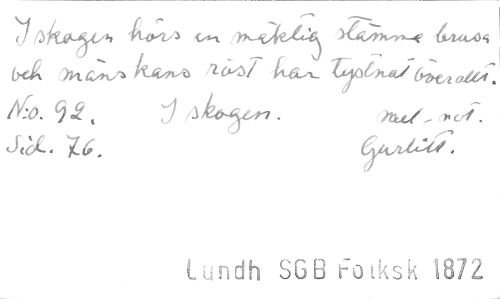 I skogen hörs en mäktig stämma brusa
och mänskans röst har tystnat överallt.
N:o. 92. I skogen. mel. not.
Sid. 76. Gurlitt.
Lundh SGB Folksk 1872